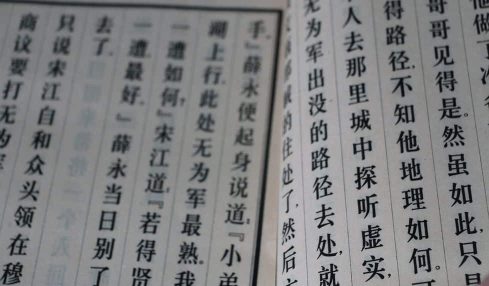 他做
哥哥见得是。然虽如此，只
得路径，不知他地理如何。可
人去那里城中探听虚实，
无为军出没的路径去处，就
的住处了，然后方
手。』薛永便起身说道：『小弟
湖上行，此处无为军最熟。我
一遭如何？』宋江道：『若得贤
一遭，最好。』薛永当日别了
去了。
只说宋江自和众头领在穆
商议要打无为军